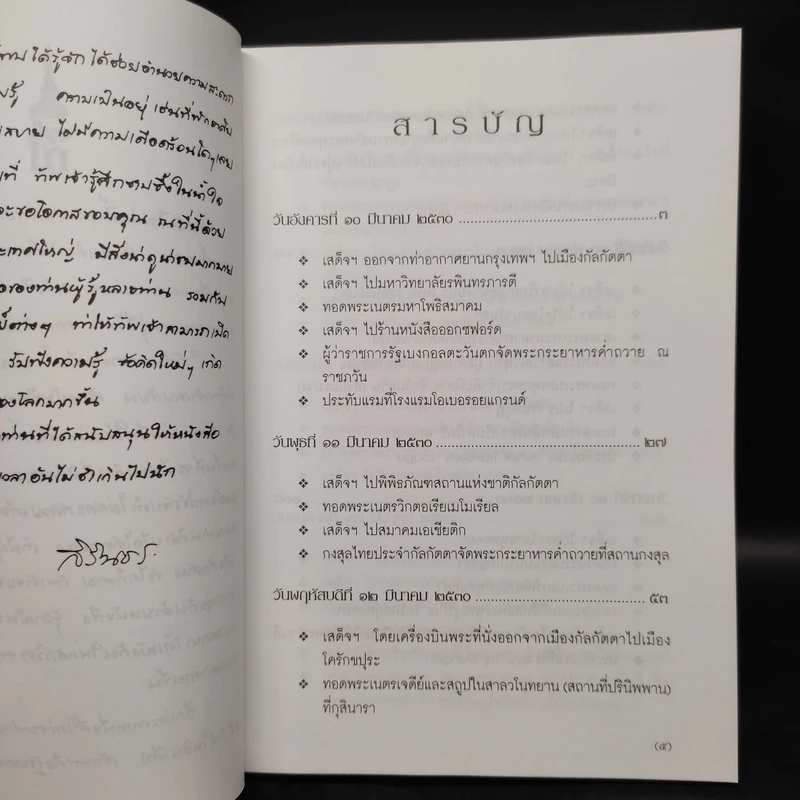 ได้รู้จัก ได้ช่วยอำนวยความสะดวก
ความเป็นอยู่ เช่นที่พักอาศัย
สบาย ไม่มีความเดือดร้อนใดๆเลย
ที่ ข้าพเจ้ารู้สึกซาบซึ้งในน้ำใจ
ขอโอกาสขอบคุณ ณ ที่นี้ด้วย
ประเทศใหญ่ มีสิ่งน่าดูน่าชมมากมาย
ของท่านผู้รู้หลายท่าน รวมกับ
ต่างๆ ทำให้ข้าพเจ้าสามารถเปิด
รับฟังความรู้ ข้อคิดใหม่ๆ เกิด
ของโลกมากขึ้น
ท่านที่ได้สนับสนุนให้หนังสือ
เวลาอันไม่ช้าเกินไปนัก
สิรินธร
สารบัญ
วันอังคารที่ ๑๐ มีนาคม ๒๕๓๐ ................................................ ๓
❖ เสด็จฯ ออกจากท่าอากาศยานกรุงเทพฯ ไปเมืองกัลกัตตา
❖ เสด็จฯ ไปมหาวิทยาลัยรพินทรภารตี
❖ ทอดพระเนตรมหาโพธิสมาคม
❖ เสด็จฯ ไปร้านหนังสือออกซฟอร์ด
❖ ผู้ว่าราชการรัฐเบงกอลตะวันตกจัดพระกระยาหารค่ำถวาย ณ
ราชภวัน
❖ ประทับแรมที่โรงแรมโอเบอรอยแกรนด์
วันพุธที่ ๑๑ มีนาคม ๒๕๓๐ ................................................ ๒๗
❖ เสด็จฯ ไปพิพิธภัณฑสถานแห่งชาติกัลกัตตา
❖ ทอดพระเนตรวิกตอเรียเมโมเรียล
❖ เสด็จฯ ไปสมาคมเอเชียติก
❖ กงสุลไทยประจำกัลกัตตาจัดพระกระยาหารค่ำถวายที่สถานกงสุล
วันพฤหัสบดีที่ ๑๒ มีนาคม ๒๕๓๐ ........................................ ๕๓
❖ เสด็จฯ โดยเครื่องบินพระที่นั่งออกจากเมืองกัลกัตตาไปเมือง
โครักขปุระ
❖ ทอดพระเนตรเจดีย์และสถูปในสาลวโนทยาน (สถานที่ปรินิพพาน)
ที่กุสินารา
(๕)